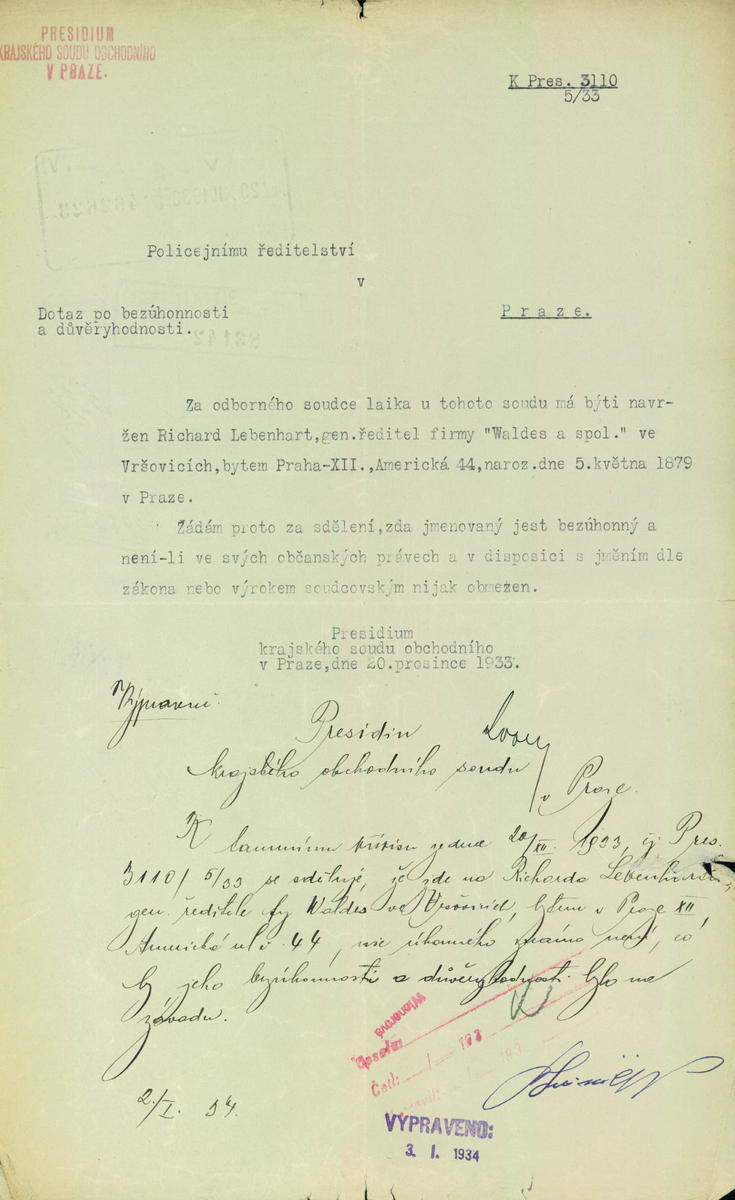 PRESIDIUM
KRAJSKÉHO SOUDU OBCHODNÍHO
V PRAZE.
K Pres. 3110
5/33
Policejnímu ředitelství
v
Dotaz po bezúhonnosti
a důvěryhodnosti.
Praze.
Za odborného soudce laika u tohoto soudu má býti navr-
žen Richard Lebenhart,gen.ředitel firmy "Waldes a spol." ve
Vršovicích,bytem Praha-XII.,Americká 44,naroz.dne 5.května 1879
v Praze.
Žádám proto za sdělení,zda jmenovaný jest bezúhonný a
není-li ve svých občanských právech a v disposici s jměním dle
zákona nebo výrokem soudcovským nijak obmezen.
Presidium
krajského soudu obchodního
v Praze,dne 20.prosince 1933.
Presidiu
krajského obchodního soudu
v Praze.
K ze dne 20/XII. 1933, čj. Pres.
3110/5/33 se sděluje, že zde na Richarda Lebenharta
gen. ředitele fy Waldes ve Vršovicích, bytem v Praze XII,
Americká ul. č. 44, nic úhonného známo není, co
by jeho bezúhonnosti a důvěryhodnosti bylo na
závadu.
2./I. 34.
Opsal:
Četl: / 193
VYPRAVENO:
3. I. 1934